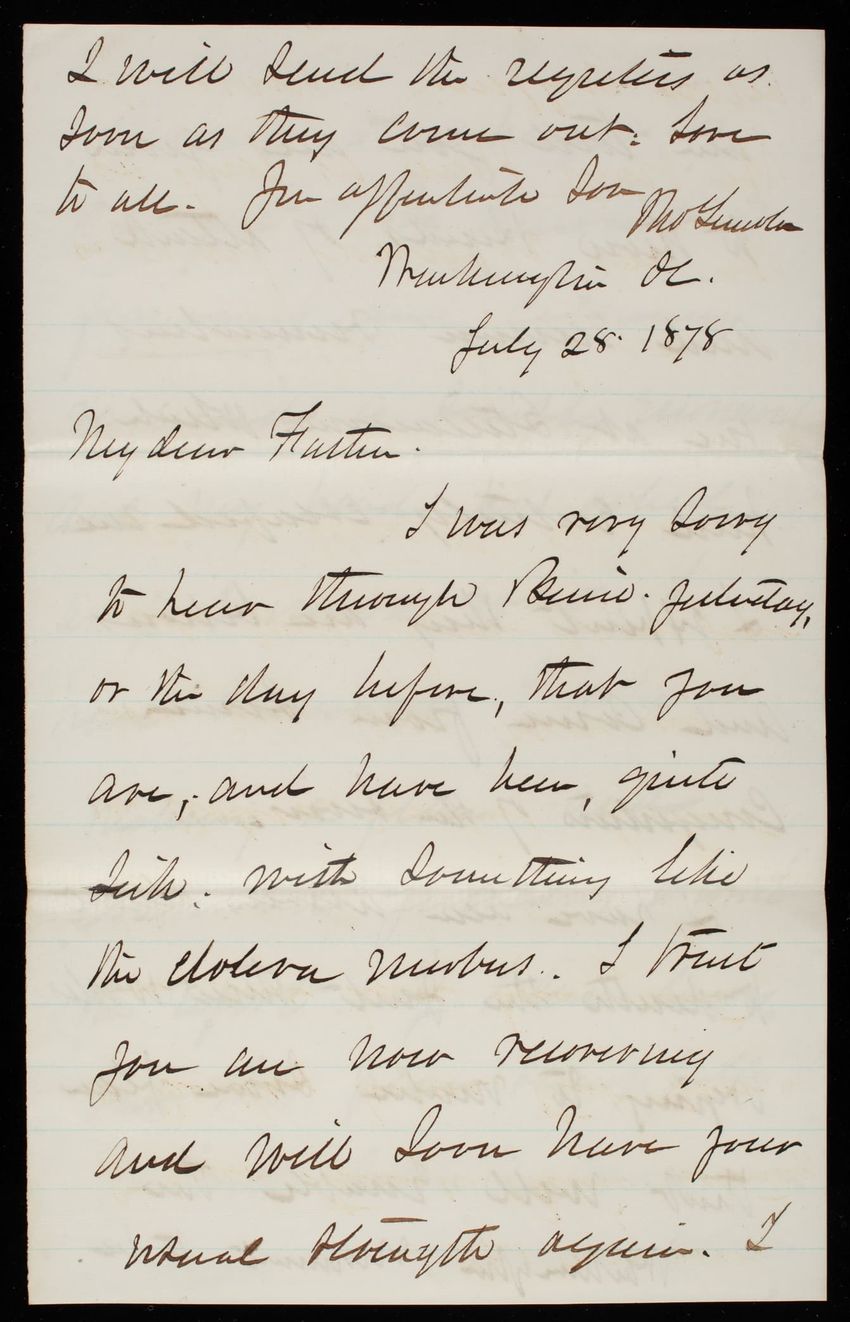 I will send the registers as
soon as they come out. Love
to all. Your affectionate Son
Washington DC.
July 28 1878
My dear Father.
I was very sorry
to hear through Bernie yesterday,
or the day before, that you
are, and have been, quite
sick. with something like
the cholera morbus. I trust
you are now recovering
and will soon have your
usual strength again. I